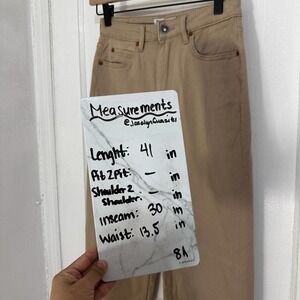 Measurements
@jocelynfinds
Lenght: 41 in
Pit 2 Pit: — in
Shoulder 2
Shoulder: — in
Inseam: 30 in
Waist: 13.5 in